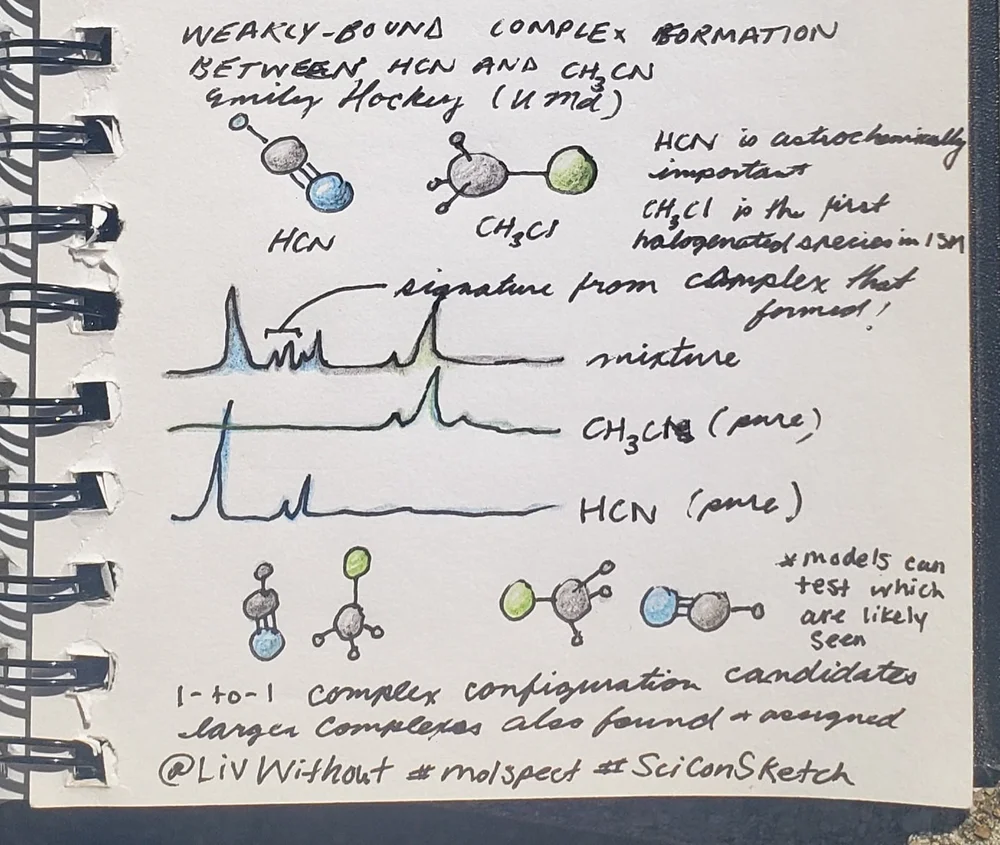 WEAKLY-BOUND COMPLEX FORMATION
BETWEEN HCN AND CH₃CN
Emily Hockey (UMd)
HCN is astrochemically
important
CH₃Cl is the first
halogenated species in ISM
HCN
CH₃Cl
signature from complex that
formed!
mixture
CH₃Cl (pure)
HCN (pure)
*models can
test which
are likely
seen
1-to-1 complex configuration candidates
larger complexes also found + assigned
@LivWithout #molspect #SciConSketch